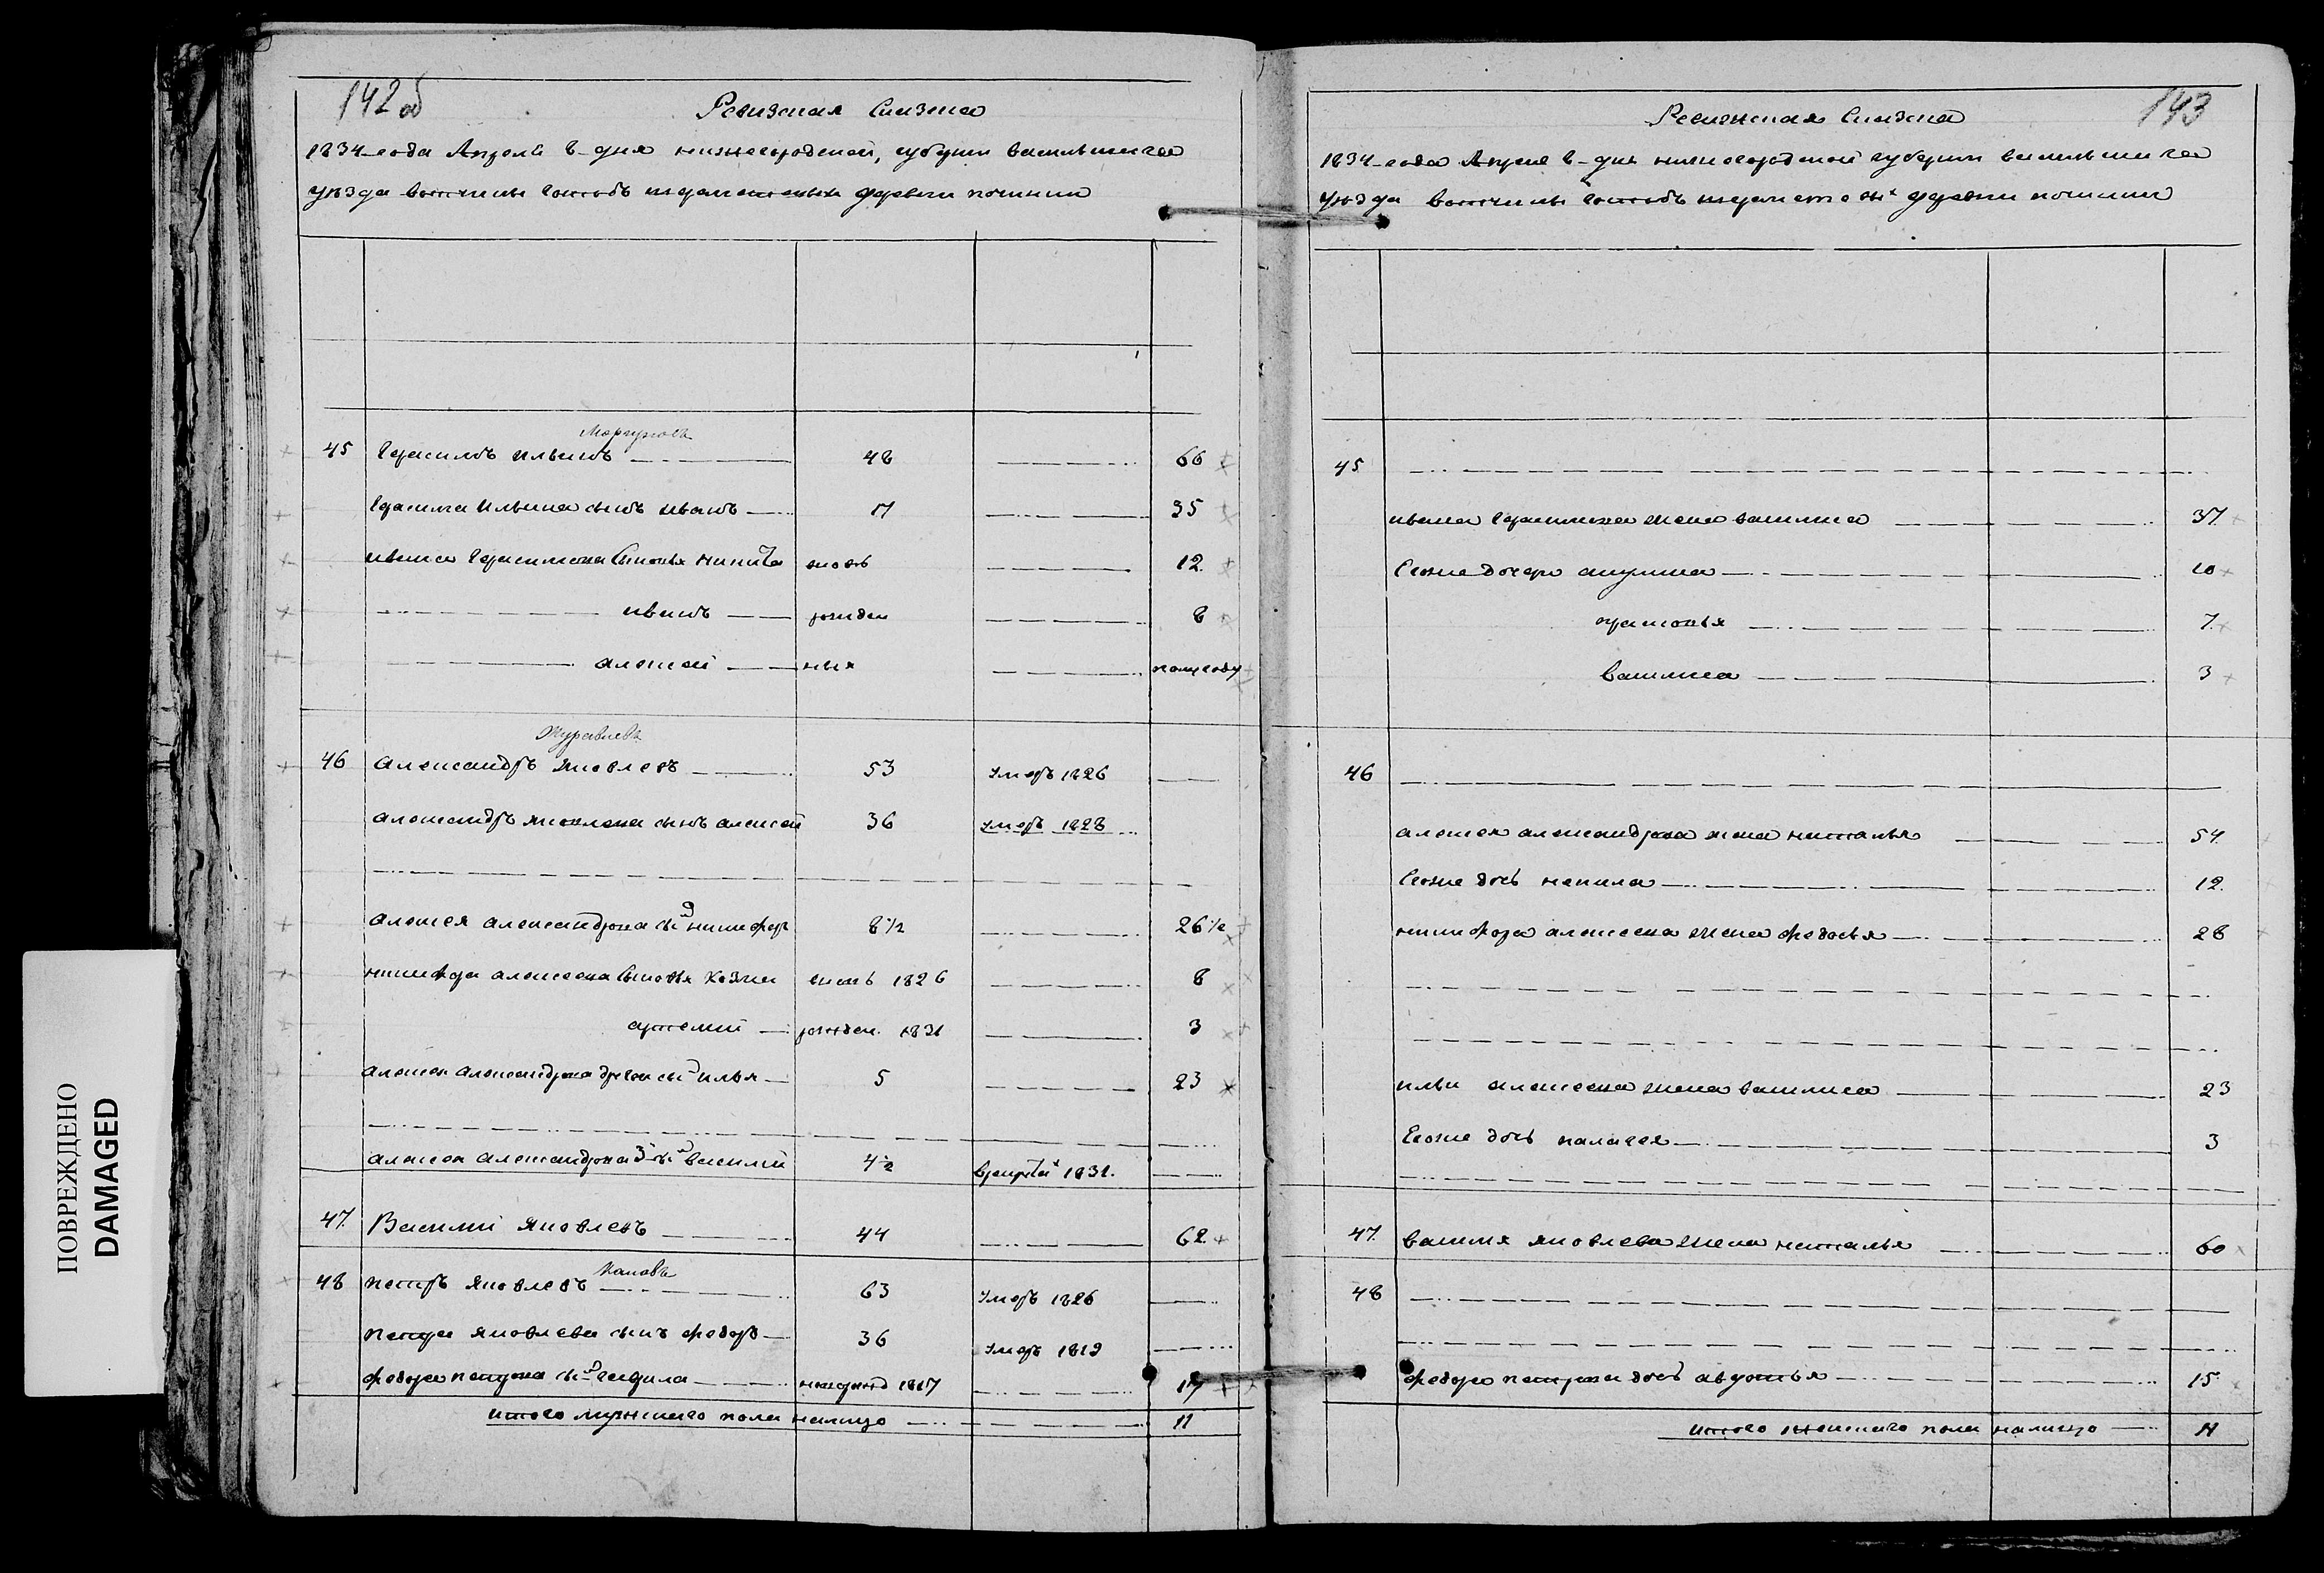 ПОВРЕЖДЕНО
DAMAGED
142 об
Ревизская Сказка
1834 года Апреля 8 дня нижегородской губерни васильскаго
уезда вотчины деревни починки
45 Герасимъ Ильинъ 48 66
Герасима Ильина сынъ иванъ 17 35
ивана Герасимова Сыновья никита вновь 12
иванъ рожден 8
алексей ныя полугоду
Журавлевъ
46 александръ яковлевъ 53 умеръ 1826
александръ яковлева сынъ алексей 36 умеръ 1828
алексея александрова сынъ никифоръ 8½ 26½
никифора алексеева Сыновья Козма вновь 1826 8
артемий рожден. 1831 3
алексея александрова другой сынъ илья 5 23
алексея александрова 3й сынъ василий 4½ врекруты 1831.
47 Василий яковлевъ 44 62
48 петръ яковлевъ 63 умеръ 1826
петра яковлева сынъ федоръ 36 умеръ 1819
федора петрова сынъ гаврила 1817 17
итого мужскаго пола налицо 11
143
Ревижская Сказка
1834 года Апреля 8 дня нижегородской губерни васильскаго
уезда вотчины деревни починки
45
ивана Герасимова жена василиса 37
Ееоже дочери акулина 10
прасковья 7
василиса 3
46
алексея александрова жена наталья 54
Ееоже дочь ненила 12
никифора алексеева жена федосья 28
ильи алексеева жена василиса 23
Ееоже дочь палагея 3
47 василия яковлева жена наталья 60
48
федора петрова дочь авдотья 15
итого женскаго пола налицо 11